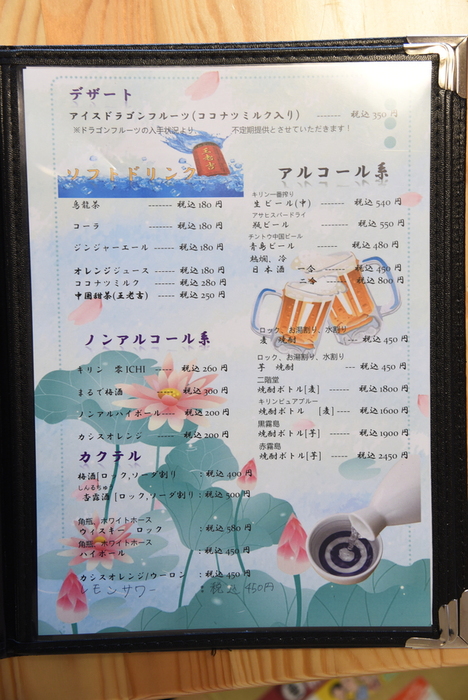 デザート
アイスドラゴンフルーツ(ココナツミルク入り) ------ 税込 350 円
※ドラゴンフルーツの入手状況より、 不定期提供とさせていただきます!
ソフトドリンク
烏龍茶 ------ 税込 180 円
コーラ ------ 税込 180 円
ジンジャーエール ------ 税込 180 円
オレンジジュース ------ 税込 180 円
ココナツミルク ------ 税込 280 円
中国甜茶(王老吉) ---- 税込 250 円
ノンアルコール系
キリン 零 ICHI ---- 税込 260 円
まるで梅酒 ------ 税込 360 円
ノンアルハイボール---- 税込 200 円
カシスオレンジ ------ 税込 200 円
カクテル
梅酒[ロック,ソーダ割り :税込 400 円
しんるちゅう
杏露酒 [ロック,ソーダ割り:税込 500 円
角瓶、ホワイトホース
ウィスキー ロック :税込 580 円
角瓶、ホワイトホース
ハイボール :税込 450 円
カシスオレンジ/ウーロン :税込 450 円
レモンサワー :税込 450円
アルコール系
キリン一番搾り
生ビール(中) ---- 税込 540 円
アサヒスパードライ
瓶ビール ------ 税込 550 円
チントウ中国ビール
青島ビール ------ 税込 480 円
熱燗、冷
日本酒 一合 ------ 税込 450 円
二合 ------ 税込 800 円
ロック、お湯割り、水割り
麦 焼酎 ------ 税込 450 円
ロック、お湯割り、水割り
芋 焼酎 ------ 税込 450 円
二階堂
焼酎ボトル[麦] ------ 税込 1800 円
キリンピュアブルー
焼酎ボトル [麦] ---- 税込 1600 円
黒霧島
焼酎ボトル[芋] ------ 税込 1900 円
赤霧島
焼酎ボトル[芋] ------ 税込 2450 円